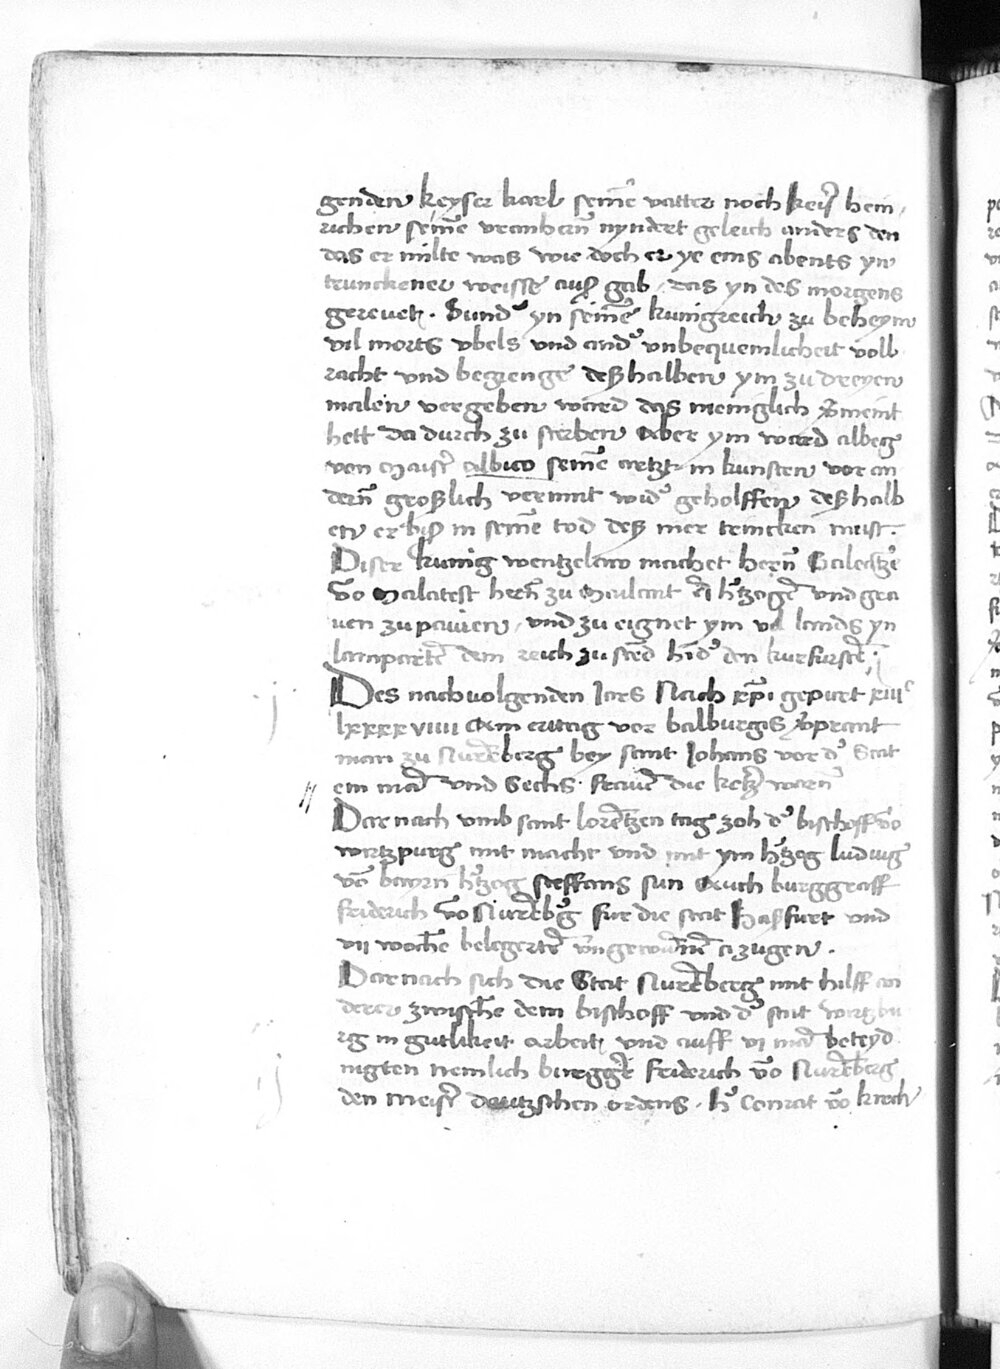 genden keyser karl seinē vatter noch keiß hein,
richen seinē vranhern̄ nyndert geleich anders den
das er milte was wie doch er ye eins abents yn
trunckener weisse auß gab, das yn des morgens
gereuet. Sund' yn seinē kunigreich zu beheym
vil morts vbels vnd and' vnbequemlicheit volb
racht vnd begienge deßhalben ym zu dreyen
malen vergeben ward das meniglich v'meint
hett da durch zu sterben Aber ym ward albeg
von Maist' albico seinē artzt in kunsten vor an
dern̄ großlich vermut wid' geholffen deßhalb
en er biß in seinē tod deß mer trincken must.
Diser kunig wentzelaw machet hern̄ Galeatze
vō Malatest hern̄ zu Mailant h'tzogē vnd gra
uen zu pauien, vnd zu eignet ym vil lands yn
lamparte dem reich zu hind' den kurfurstē.
Des nachuolgenden Jars Nach xp̄i gepurt xiii
lxxxx viiii Am ertag vor balburgis v'prant
man zu Nurēberg bey sant Johans vor d' Stat
ein mā vnd Sechs frauē die ketz' warn̄
Dar nach vmb sant lorētzen tag zoh d' bischoff vō
wirtzpurg mit macht vnd mit ym h'tzog ludwig
vō bayrn h'tzog steffans sun Auch burggraff
friderich vō Nurēb'g fur die stat haßfurt vnd
vii wochē belegertē vngewūnē abzugen.
Dar nach sich die Stat Nurēberg mit hilff an
derer zwischē dem bischoff vnd d' stat wirtzbu
rg in gutlikeit arbeit, vnd auff vi mā beteyd
nigten nemlich burggrē friderich vō Nurēberg
den meist' deutzschen ordens, h' Conrat vō